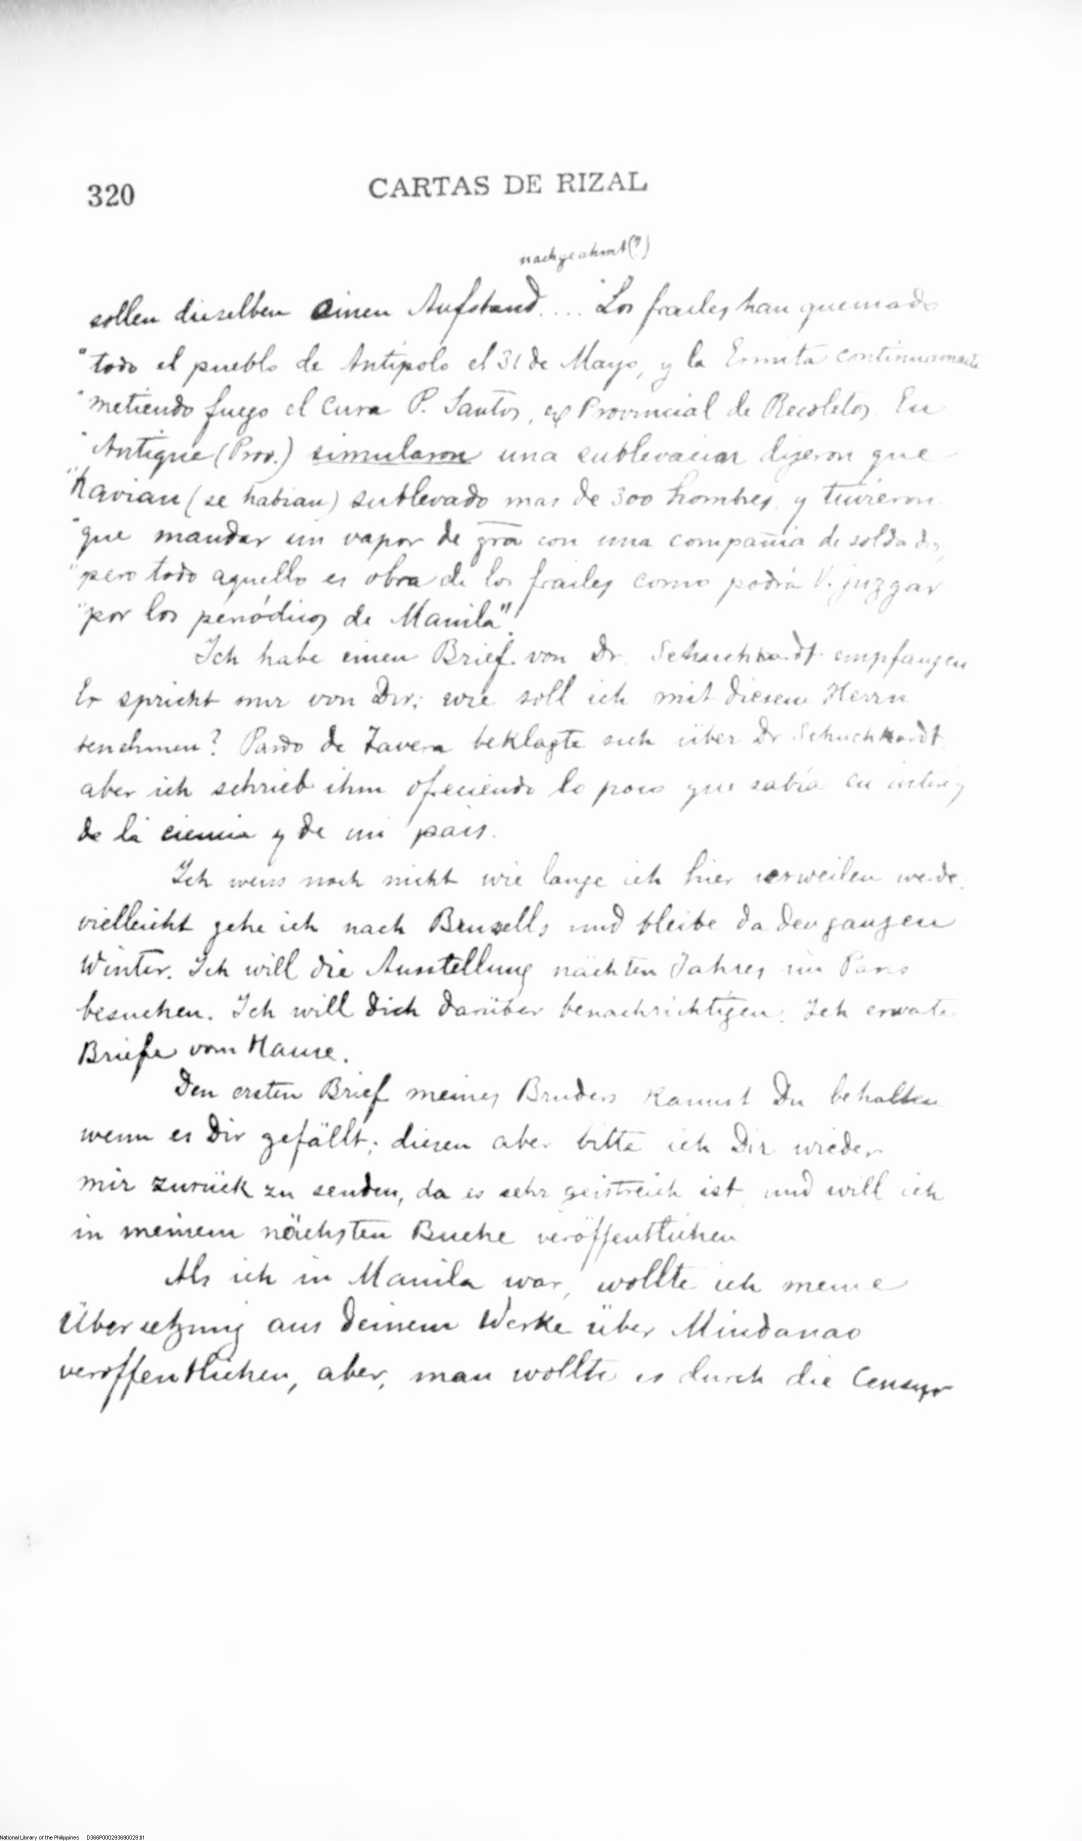 320
CARTAS DE RIZAL
nachgeahmt(?)
sollen dieselben einen Aufstand.... "Los frailes han quemado
"todo el pueblo de Antipolo el 31 de Mayo, y la Ermita continuamente
"metiendo fuego el Cura P. Santos, ex Provincial de Recoletos. En
"Antique (Prov.) simularon una sublevacion dijeron que
"havian (se habian) sublevado mas de 300 hombres y tuvieron
"que mandar un vapor de gra con una compañia de soldados,
"pero todo aquello es obra de los frailes como podrá V. juzgar
"por los periódicos de Manila".
Ich habe einen Brief von Dr. Schuchhardt empfangen
Er spricht mir von Dir; wie soll ich mit diesem Herrn
benehmen? Pardo de Tavera beklagte sich über Dr Schuchhardt
aber ich schrieb ihm ofreciendo lo poco que sabía en
de la ciencia y de mi pais.
Ich weiss noch nicht wie lange ich hier verweilen werde,
vielleicht gehe ich nach Brusells und bleibe da den ganzen
Winter. Ich will die Ausstellung nächten Jahres in Paris
besuchen. Ich will Dich darüber benachrichtigen. Ich erwarte
Briefe vom Hause.
Den ersten Brief meines Bruders kannst Du behalten
wenn es Dir gefällt; diesen aber bitte ich Dir wieder
mir zurück zu senden, da es sehr geistreich ist, und will ich
in meinem nächsten Buche veröffentlichen
Als ich in Manila war, wollte ich meine
Übersetzung aus Deinem Werke über Mindanao
veröffentlichen, aber, man wollte es durch die Censur
National Library of the Philippines